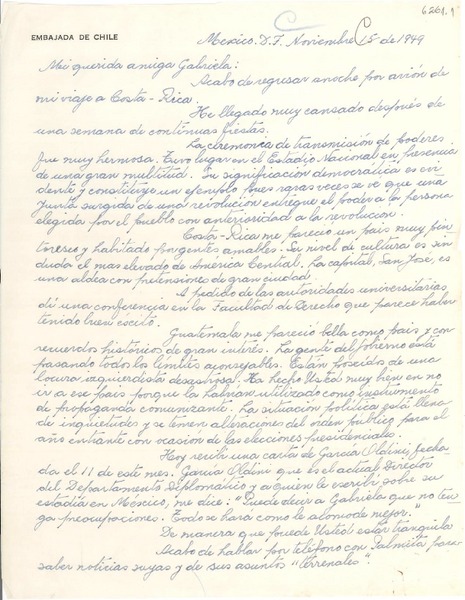 6261.1
EMBAJADA DE CHILE
Mexico. D.F. Noviembre 15 de 1949
Mi querida amiga Gabriela:
Acabo de regresar anoche por avión de
mi viaje a Costa-Rica.
He llegado muy cansado después de
una semana de continuas fiestas.
La ceremonia de transmisión de poderes
fue muy hermosa. Tuvo lugar en el Estadio Nacional en presencia
de una gran multitud. Su significación democrática es evi
dente y constituye un ejemplo pues raras veces se ve que una
Junta surgida de una revolución entregue el poder a la persona
elegida por el pueblo con anterioridad a la revolución.
Costa-Rica me pareció un país muy pin
toresco y habitado por gentes amables. Su nivel de cultura es sin
duda el mas elevado de América Central. La capital, San José, es
una aldea con pretensiones de gran ciudad.
A pedido de las autoridades universitarias
dí una conferencia en la Facultad de Derecho que parece haber
tenido buen éxito.
Guatemala me pareció bella como país y con
recuerdos históricos de gran interés. La gente del gobierno está
pasando todos los límites aconsejables. Están poseídos de una
locura izquierdista desastrosa! Ha hecho Usted muy bien en no
ir a ese país porque la habrían utilizado como instrumento
de propaganda comunizante. La situación política está llena
de inquietudes y se temen alteraciones del orden público para el
año entrante con ocasión de las elecciones presidenciales.
Hoy recibí una carta de García Oldini, fecha
da el 11 de este mes. García Oldini que es el actual Director
del Departamento Diplomático y a quien le escribí sobre su
estadía en México, me dice: "Puede decir a Gabriela que no ten
ga preocupaciones. Todo se hará como le acomode mejor."
De manera que puede Usted estar tranquila
Acabo de hablar por teléfono con Palmita para
saber noticias suyas y de sus asuntos "terrenales".